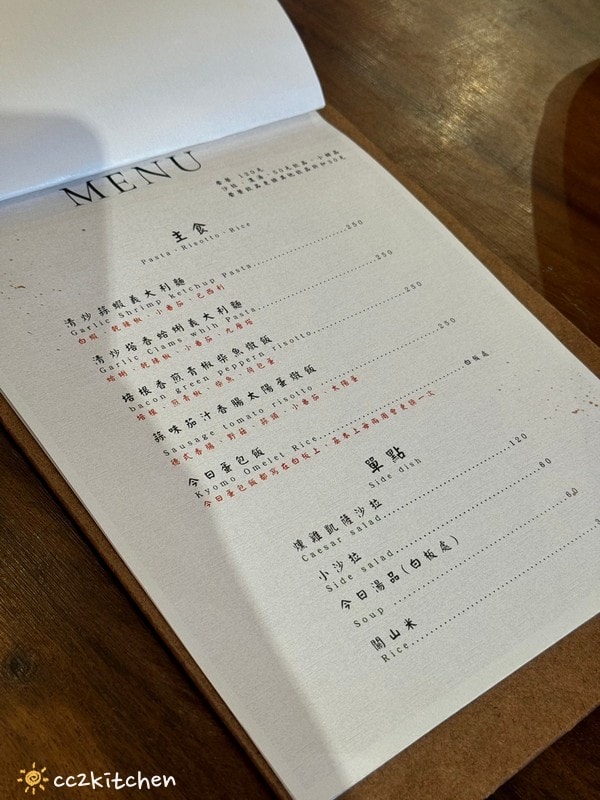 MENU
套餐 100元
沙拉、濃湯、50元飲品、小甜品
主食
Pasta · Risotto · Rice
清炒蒜蝦義大利麵
Garlic Shrimp ketchup Pasta 250
白蝦、乾辣椒、小番茄、巴西利
清炒塔香蛤蜊義大利麵
Garlic Clams whih Pasta 250
蛤蜊、乾辣椒、小番茄、九層塔
培根香煎青椒柴魚燉飯
bacon green peppern risotto 250
培根、煎青椒、柴魚、荷包蛋
蒜味茄汁香腸太陽蛋燉飯
Sausage tomato risotto 250
德式香腸、野菇、蒜頭、小番茄、太陽蛋
今日蛋包飯
Kyomo Omelet Rice 白板處
今日蛋包飯都寫在白板上，基本上每兩周會更換一次
單點
Side dish
燻雞凱薩沙拉
Caesar salad 120
小沙拉
Side salad 60
今日湯品(白板處)
Soup 60
關山米
Rice
cc2kitchen